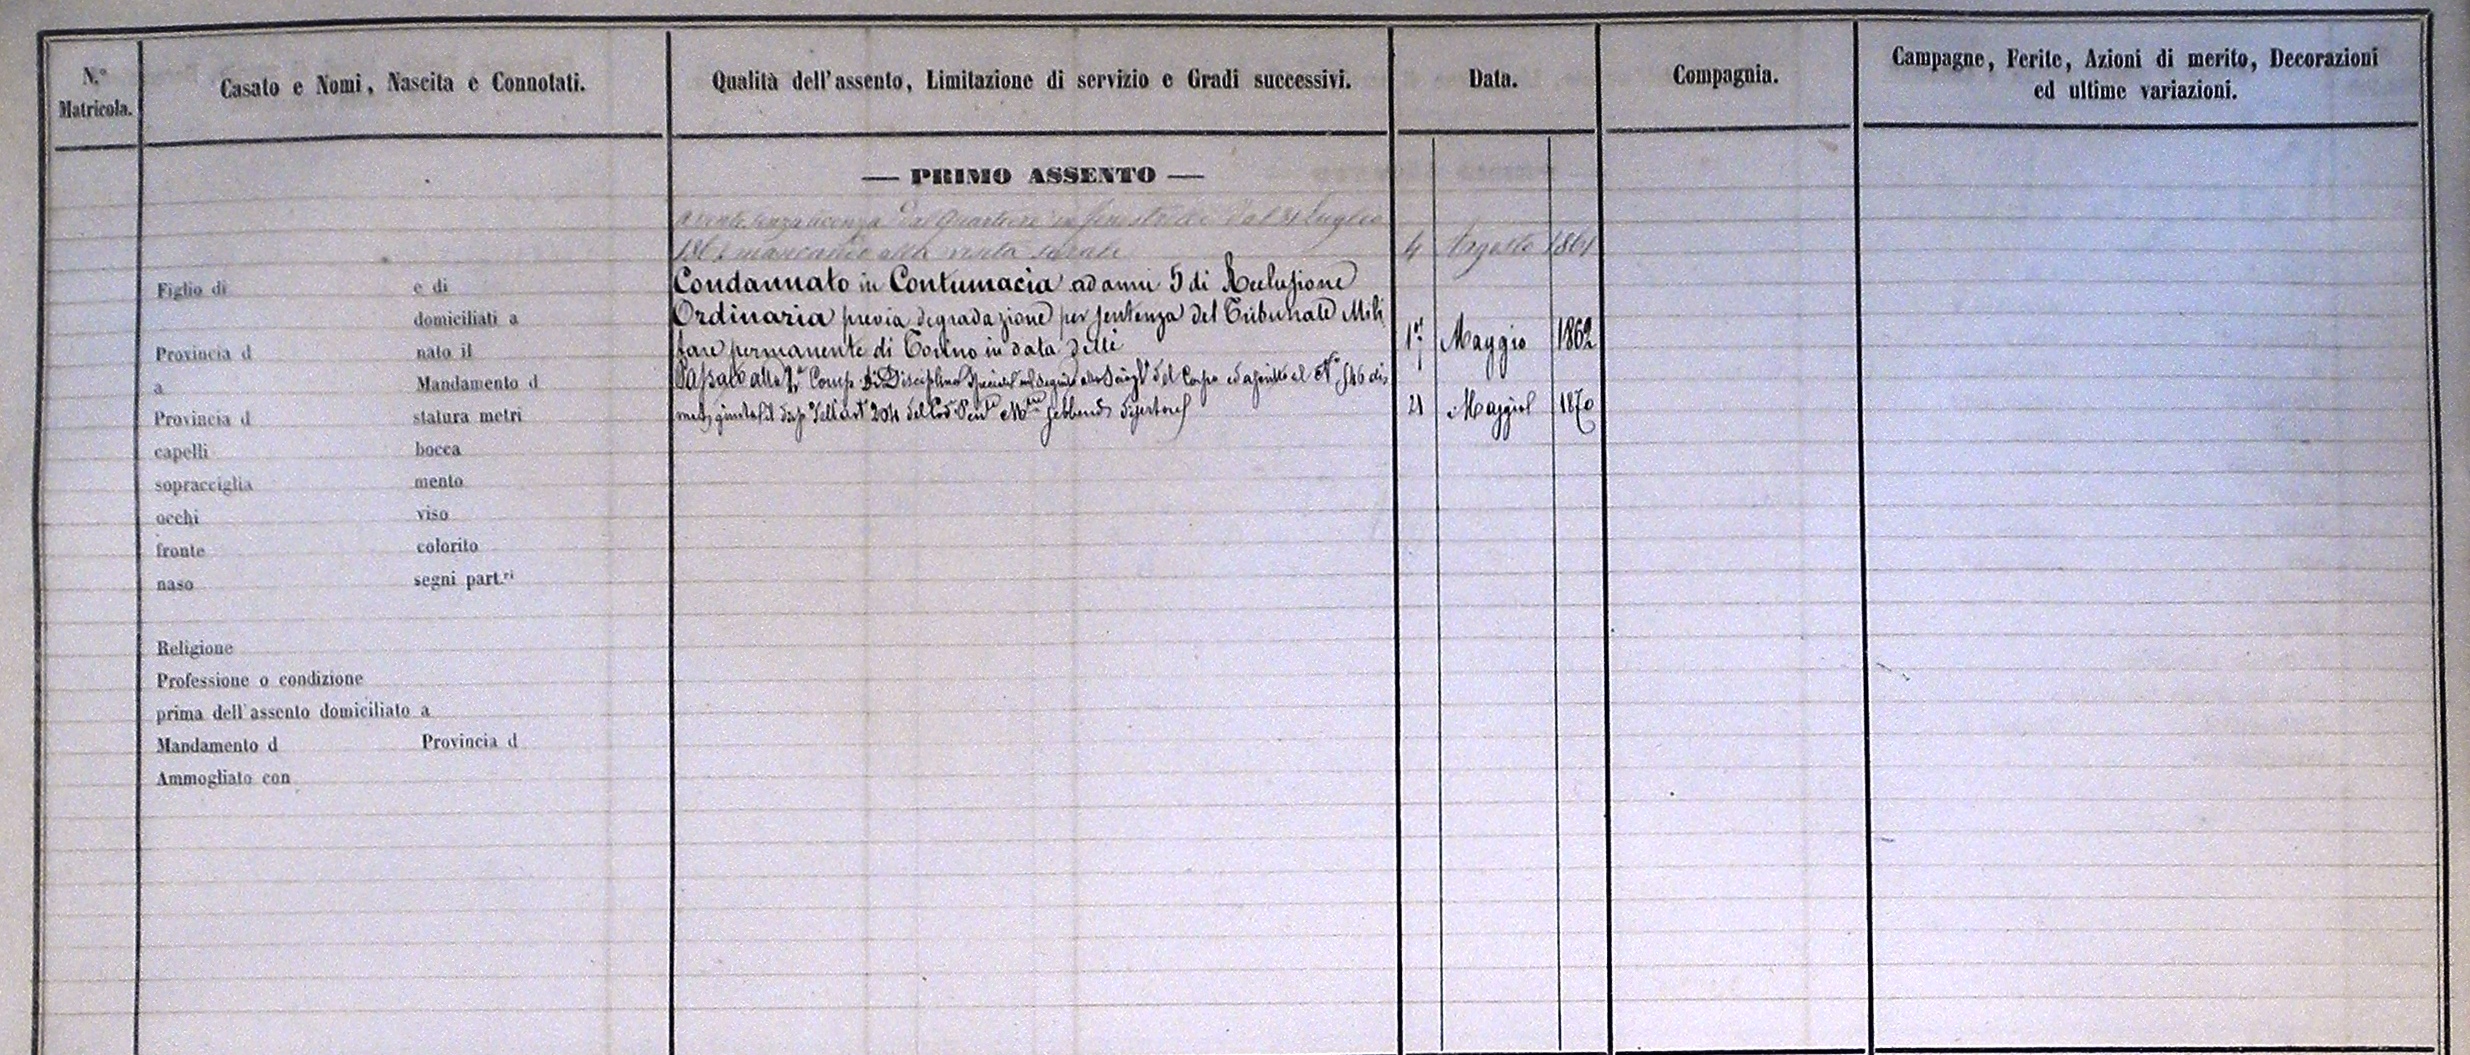 N.º Matricola.
Casato e Nomi, Nascita e Connotati.
Qualità dell'assento, Limitazione di servizio e Gradi successivi.
Data.
Compagnia.
Campagne, Ferite, Azioni di merito, Decorazioni
ed ultime variazioni.
— PRIMO ASSENTO —
senza licenza dal Quartiere in Fenestrelle dal 31 Luglio
1861 mancando alla visita serale 4 Agosto 1861
Condannato in Contumacia ad anni 5 di Reclusione
Ordinaria previa degradazione per sentenza del Tribunale Mili
tare permanente di Torino in data delli 1º Maggio 1862
Passato alla Comp. di Disciplina del Corpo ed ascritto al Nº
dell'art 204 del Cod. Pen. sebbene disertore 21 Maggio 1870
Figlio di e di
domiciliati a
Provincia d nato il
a Mandamento d
Provincia d statura metri
capelli bocca
sopracciglia mento
occhi viso
fronte colorito
naso segni part.ri
Religione
Professione o condizione
prima dell'assento domiciliato a
Mandamento d Provincia d
Ammogliato con